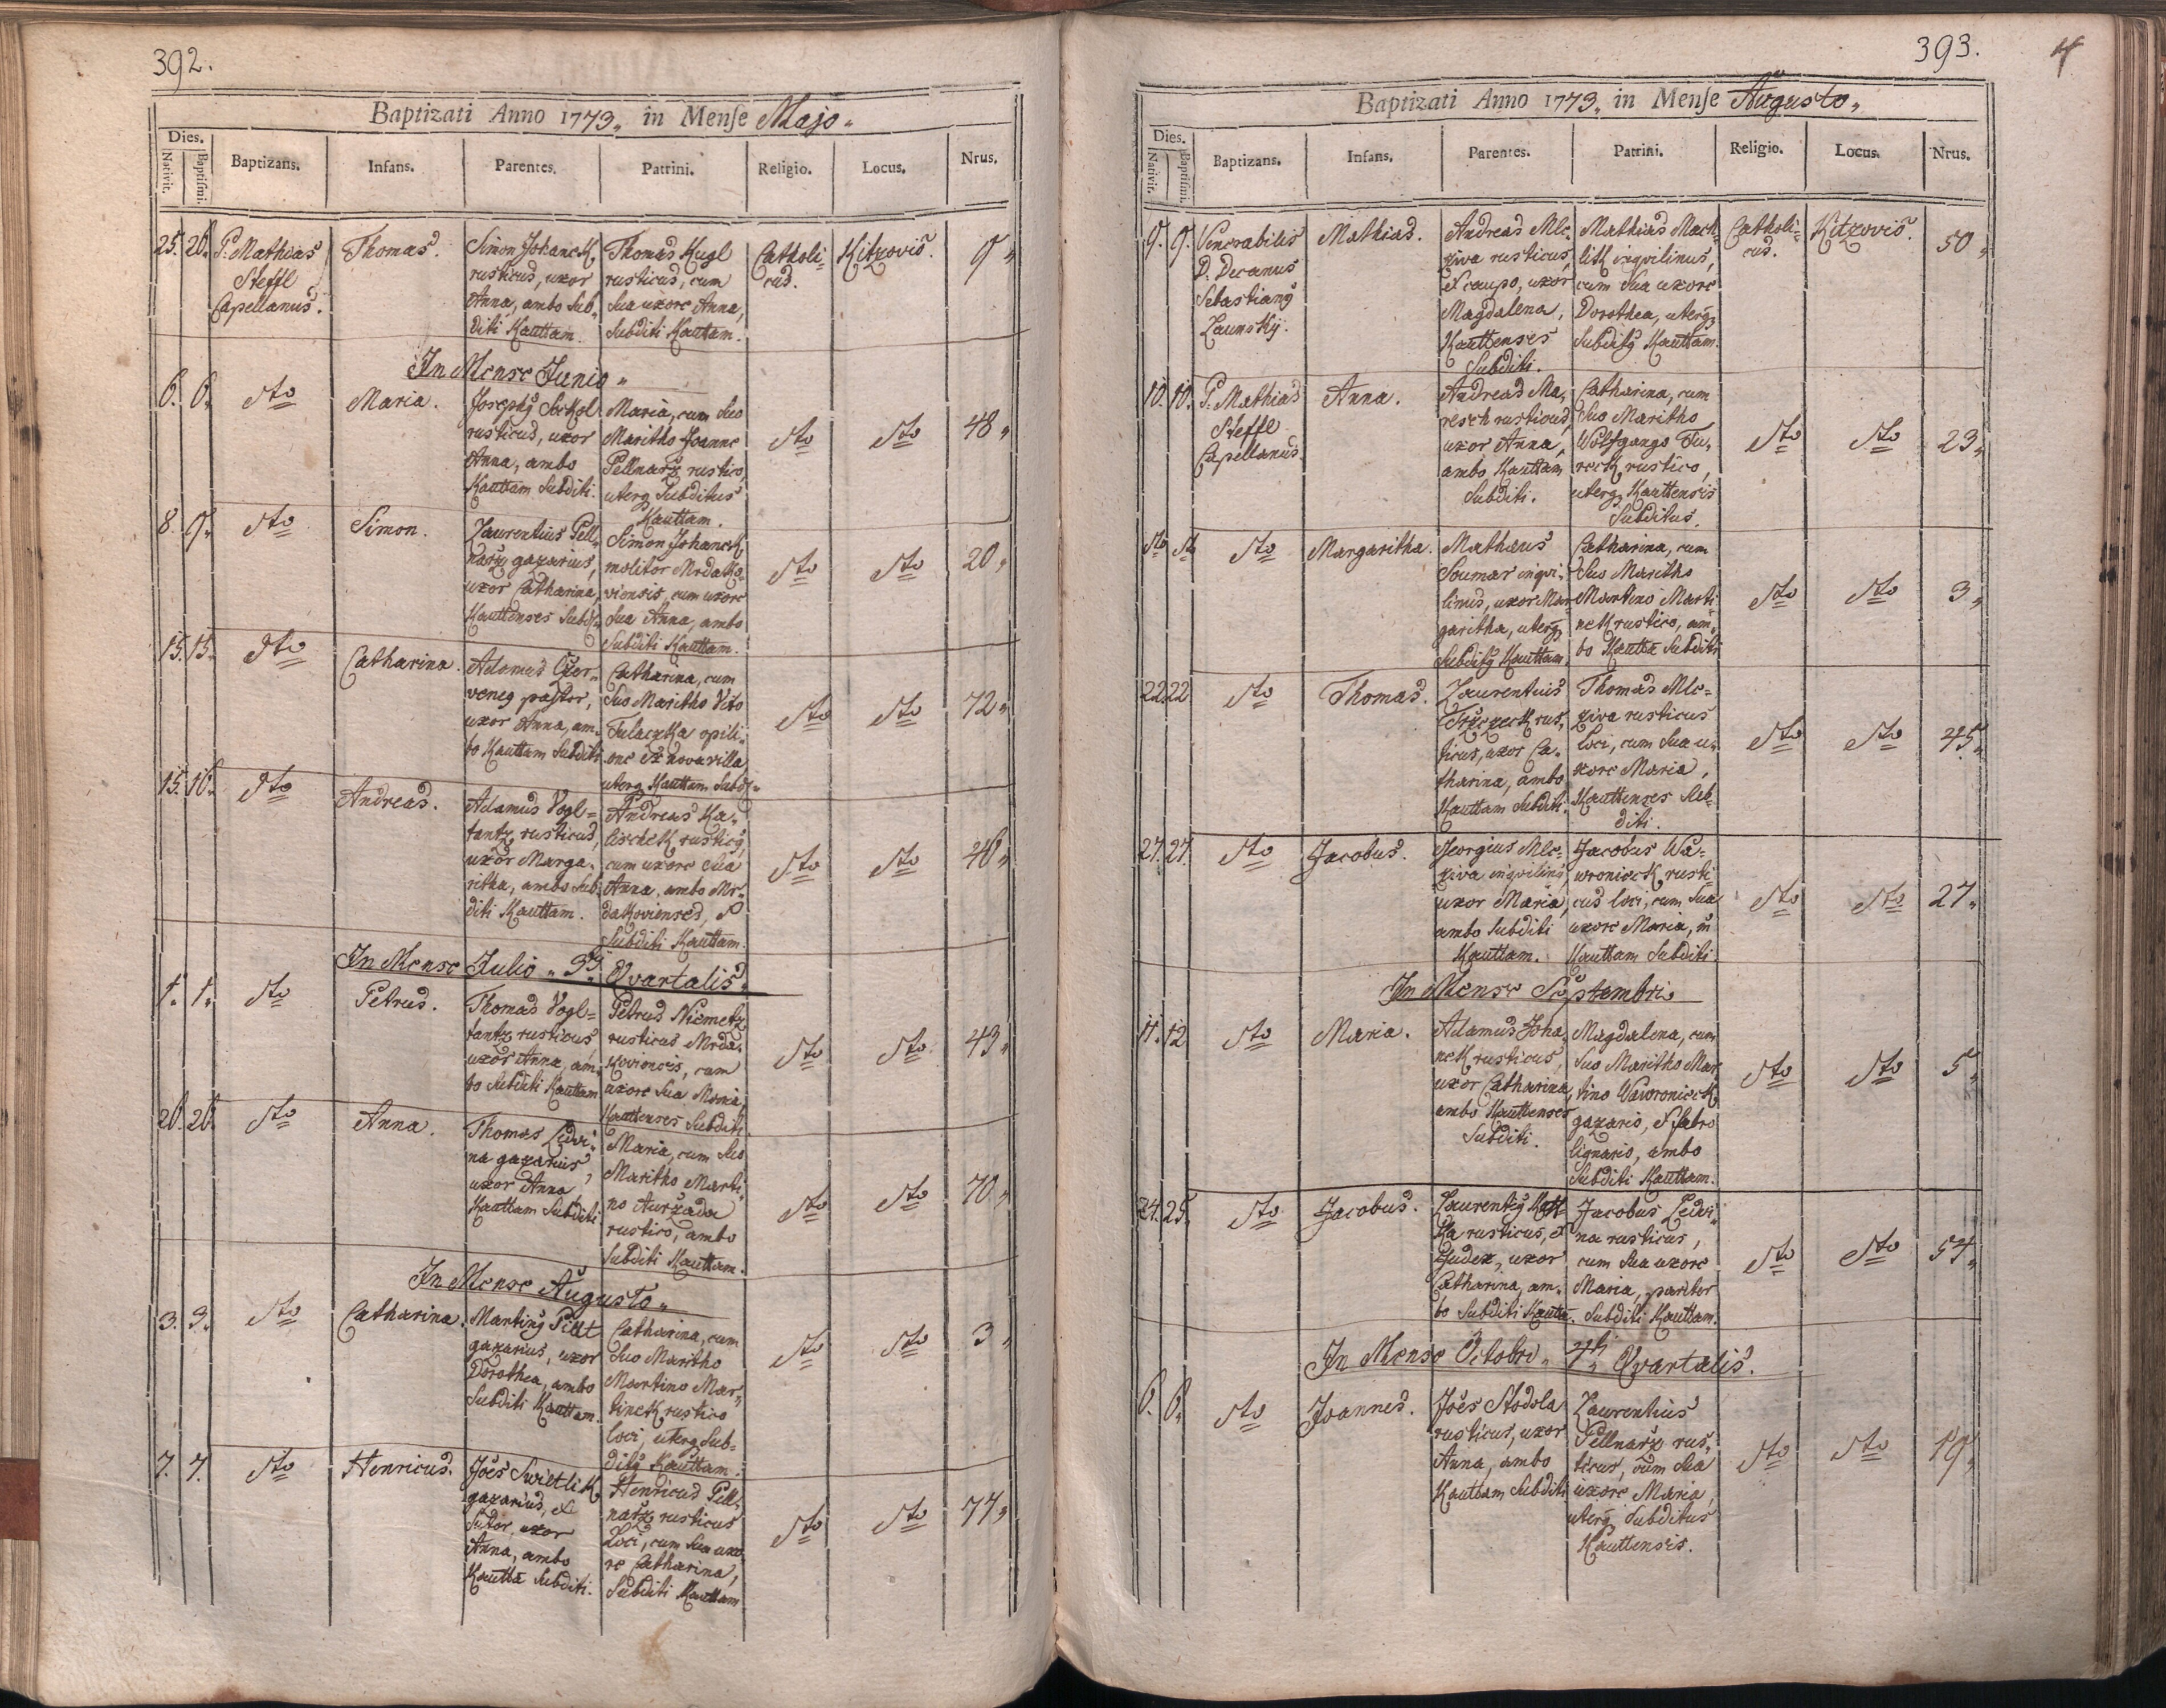 392.
Baptizati Anno 1773„ in Mense Majo„
Dies.
Nativit.
Baptismi.
Baptizans.
Infans.
Parentes.
Patrini.
Religio.
Locus.
Nrus.
25. 26.
P. Mathias
Steffl
Capellanus.
Thomas.
Simon Johaneck
rusticus, uxor
Anna, ambo Sub„
diti Kauttam.
Thomas Kugl
rusticus, cum
Sua uxore Anna,
Subditi Kauttam.
Catholi„
cus.
Kitzovis.
9„
In Mense Junio„
6. 6.
dto
Maria.
Josephg Sokol
rusticus, uxor
Anna, ambo
Kauttam Subditi.
Maria, cum Suo
Maritho Joanne
Pellnarz rustico,
uterq Subditus
Kauttam.
dto
dto
48„
8. 9.
dto
Simon.
Laurentius Pell„
narz gazarius,
uxor Catharina,
Kauttenses Subdi„
Simon Johaneck
molitor Mrdako„
viensis, cum uxore
Sua Anna, ambo
Subditi Kauttam.
dto
dto
20„
15. 15.
dto
Catharina.
Adamus Czer„
veng pastor,
uxor Anna, am„
bo Kauttam Subditi
Catharina, cum
Suo Maritho Vito
Tulaczka opili„
one ex nova villa
uterq Kauttam Subd„
dto
dto
72„
15. 16.
dto
Andreas.
Adamus Vogl=
tantz rusticus,
uxor Marga„
ritha, ambo Sub„
diti Kauttam.
Andreas Ka„
lischek rusticg,
cum uxore Sua
Anna, ambo Mr„
dakovienses, &
Subditi Kauttam.
dto
dto
46„
In Mense Julio„ 3tj Qvartalis„
1. 1.
dto
Petrus.
Thomas Vogl=
tantz rusticus,
uxor Anna, am„
bo Subditi Kauttam
Petrus Niemetz
rusticus Mrda„
koviensis, cum
uxore Sua Maria,
Kauttenses Subditi.
dto
dto
43„
26. 26.
dto
Anna.
Thomas Ledvi„
na gazarius,
uxor Anna
Kauttam Subditi
Maria, cum Suo
Maritho Marti„
no Aurzada
rustico, ambo
Subditi Kauttam.
dto
dto
70„
In Mense Augusto„
3. 3.
dto
Catharina.
Marting Pillt
gazarius, uxor
Dorothea, ambo
Subditi Kauttam.
Catharina, cum
Suo Maritho
Martino Mar„
tineck rustico
loci, uterq Sub=
ditg Kauttam.
dto
dto
3„
7. 7.
dto
Henricus.
Joês Swietlik
gazarius, et
Sutor, uxor
Anna, ambo
Kauttā Subditi.
Henricus Pell„
narz rusticus
Loci, cum Sua uxo„
re Catharina,
Subditi Kauttam
dto
dto
77„
393.
4
Baptizati Anno 1773„ in Mense Augusto„
Dies.
Nativit.
Baptismi.
Baptizans.
Infans.
Parentes.
Patrini.
Religio.
Locus.
Nrus.
9. 9.
Venerabilis
D: Decanus
Sebastiang
Launsky.
Mathias.
Andreas Mle„
ziva rusticus,
& caupo, uxor
Magdalena,
Kauttenses
Subditi.
Mathias Mach„
lik inqvilinus,
cum Sua uxore
Dorothea, uterq
Subditg Kauttam.
Catholi„
cus.
Kitzovis.
50„
10. 10.
P. Mathias
Steffl
Capellanus.
Anna.
Andreas Ma„
resch rusticus,
uxor Anna,
ambo Kauttam
Subditi.
Catharina, cum
Suo Maritho
Wolfgango Tu„
reck rustico,
uterq Kauttensis
Subditus.
dto
dto
23„
dto dto
dto
Margaritha.
Mathæus
Soumar inqvi„
linus, uxor Mar„
garitha, uterq
Subditg Kauttam.
Catharina, cum
Suo Maritho
Martino Marti„
nek rustico, am„
bo Kauttā Subditi
dto
dto
3„
22. 22.
dto
Thomas.
Laurentius
Trzczeck rus„
ticus, uxor Ca„
tharina, ambo
Kauttam Subditi.
Thomas Mle=
ziva rusticus
loci, cum Sua u„
xore Maria,
Kauttenses Sub„
diti.
dto
dto
45„
27. 27.
dto
Jacobus.
Georgius Mle„
ziva inqvilinus,
uxor Maria,
ambo Subditi
Kauttam.
Jacobus Wa„
wroniecK rusti„
cus loci, cum Sua
uxore Maria,
Kauttam Subditi.
dto
dto
27„
In Mense Septembri„
11. 12.
dto
Maria.
Adamus Joha„
nek rusticus,
uxor Catharina,
ambo Kauttenses
Subditi.
Magdalena, cum
Suo Maritho Mar„
tino Wawronieck
gazario, & fabro
lignario, ambo
Subditi Kauttam.
dto
dto
5„
24. 25.
dto
Jacobus.
ka rusticus, et
Judex, uxor
Catharina, am„
bo Subditi Kauttā.
Jacobus Ledvi„
na rusticus,
cum Sua uxore
Maria, pariter
Subditi Kauttam.
dto
dto
54„
In Mense Octobri„ 4ti„ Qvartalis.
6. 6.
dto
Joannes.
Joês Stodola
rusticus, uxor
Anna, ambo
Kauttam Subditi
Laurentius
Pellnarz rus„
ticus, cum Sua
uxore Maria,
uterq Subditus
Kauttensis.
dto
dto
19„